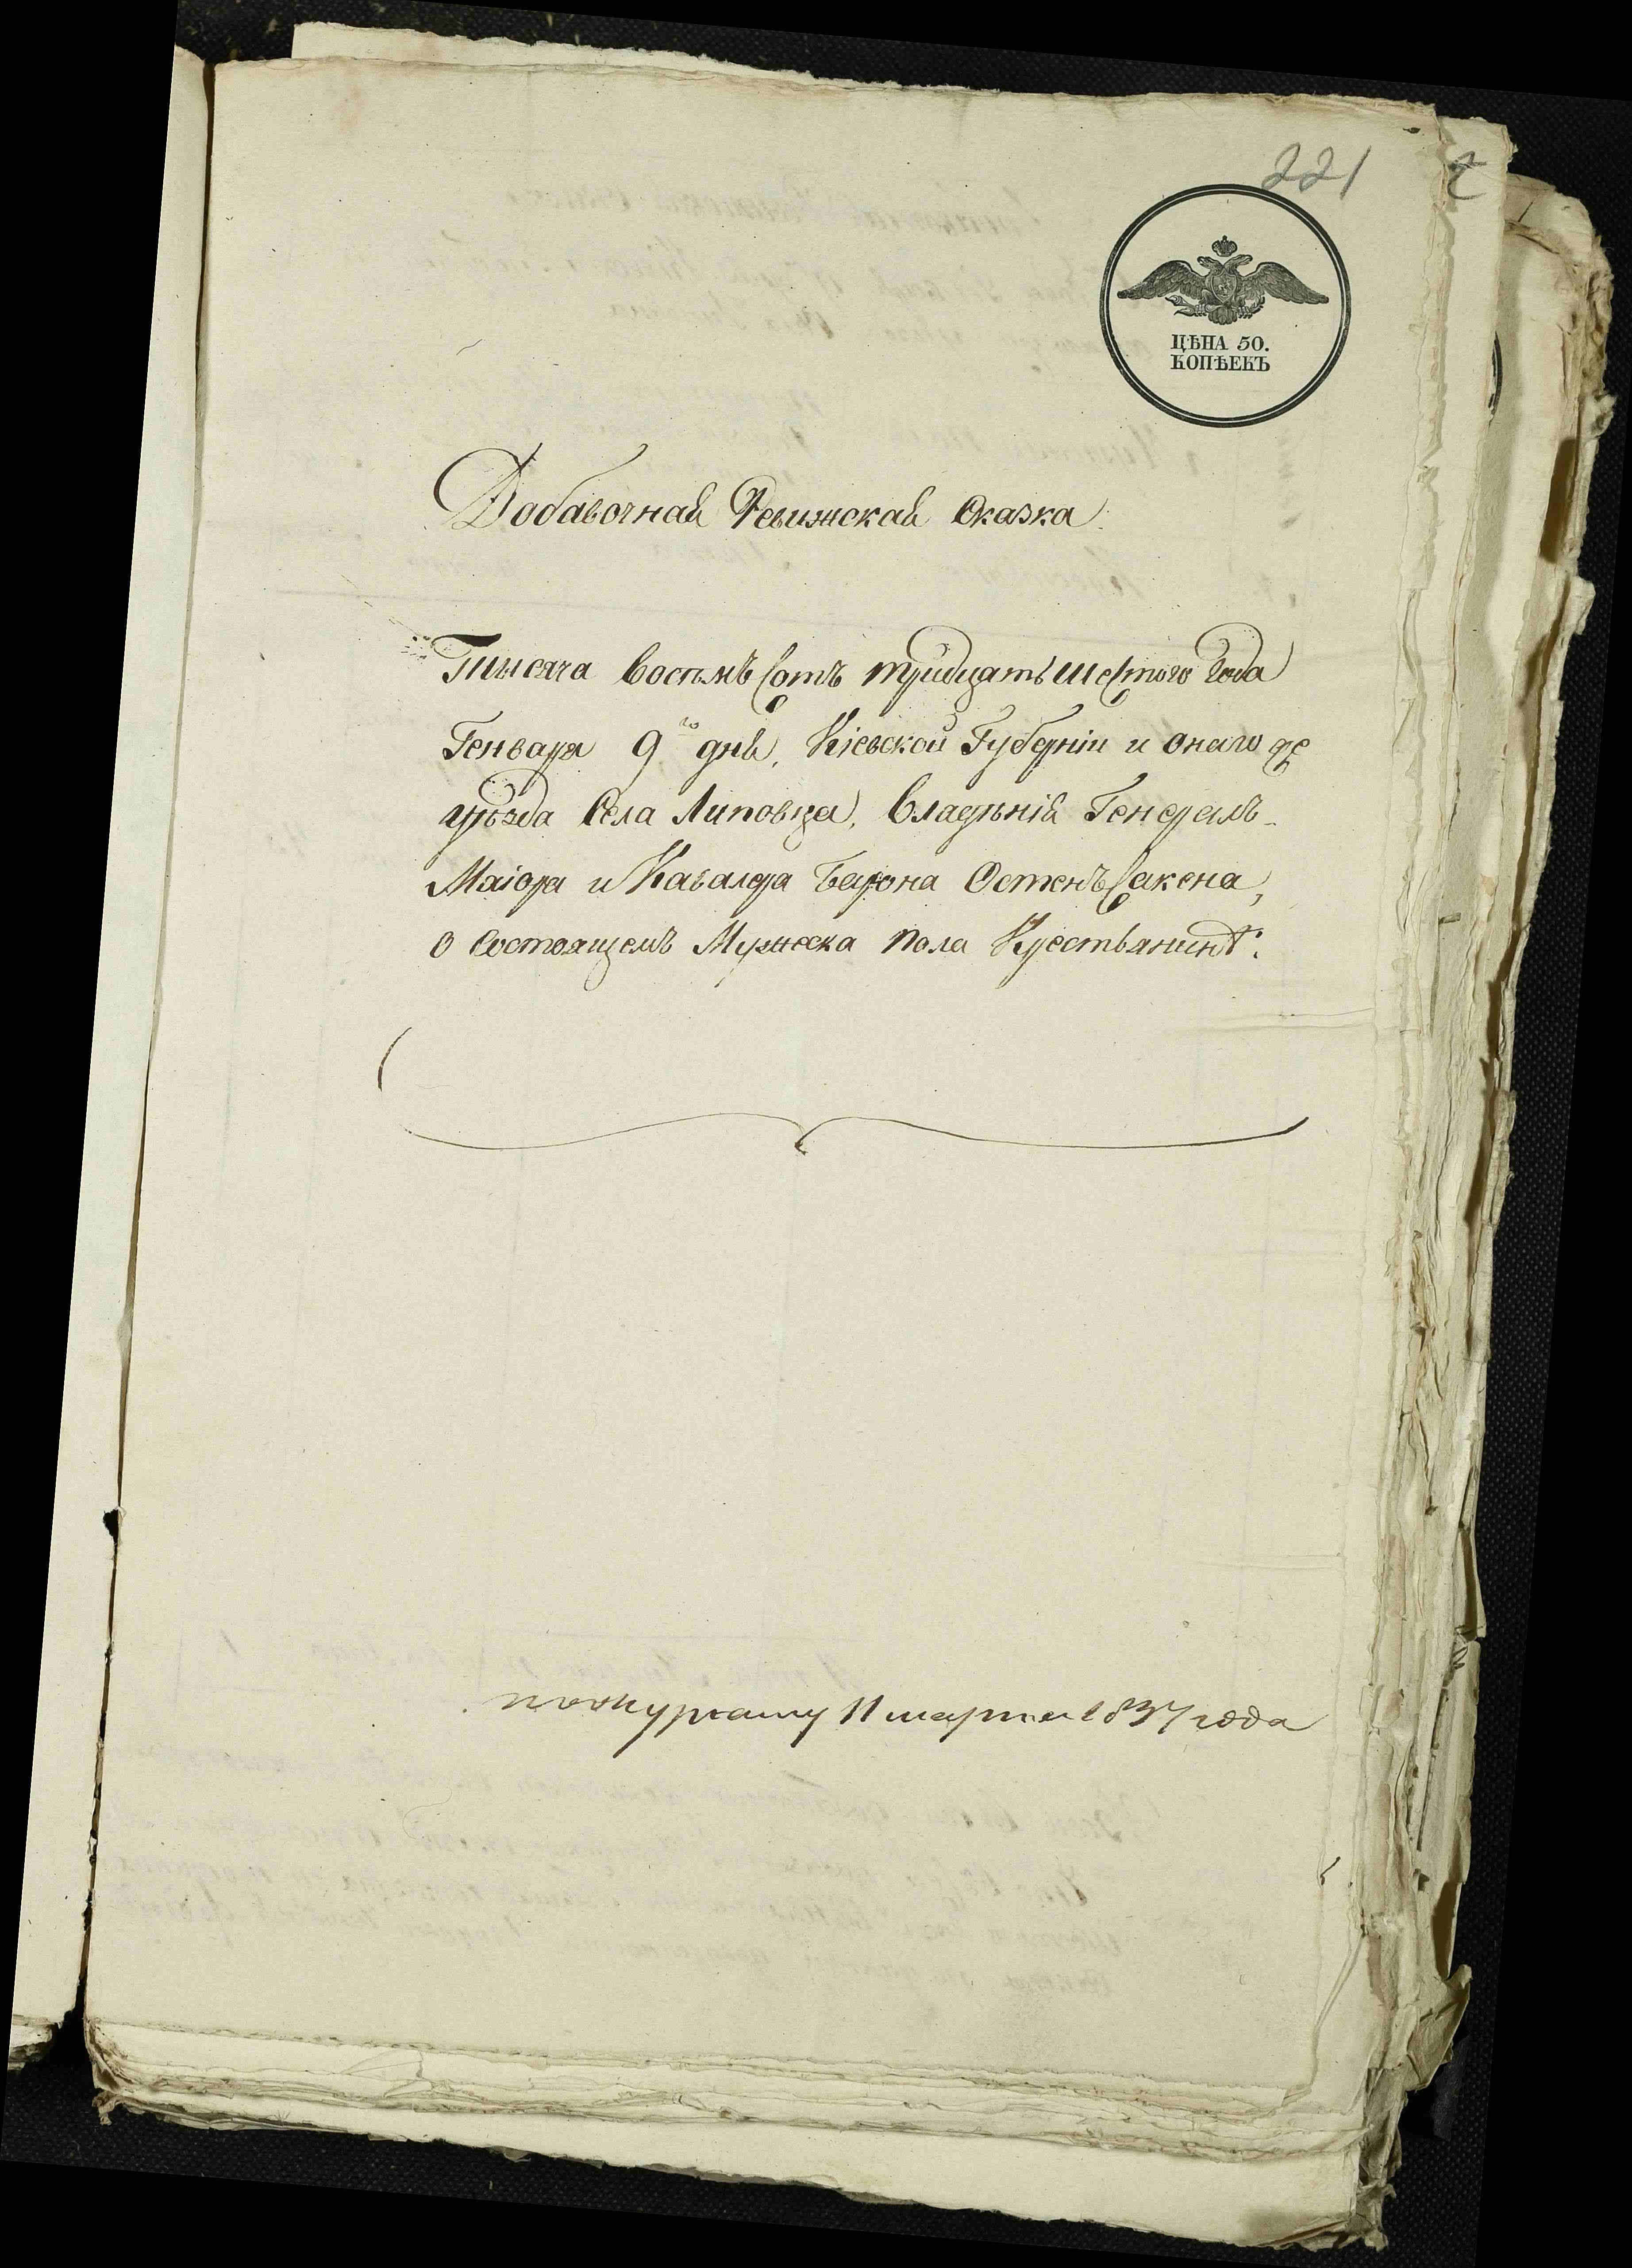 221
ЦѢНА 50.
КОПѢЕКЪ
Добавочная Ревижская Сказка
Тысяча восѣмъ сотъ тридцать шестого года
Генваря 9го дня, Кіевской Губерніи и оного же
уѣзда Села Липовца, владѣнія Генералъ-
Маіора и Кавалера Барона Остенъ Сакена,
о состоящемъ Мужеска пола Крестьянинѣ.
11 марта 1837 года